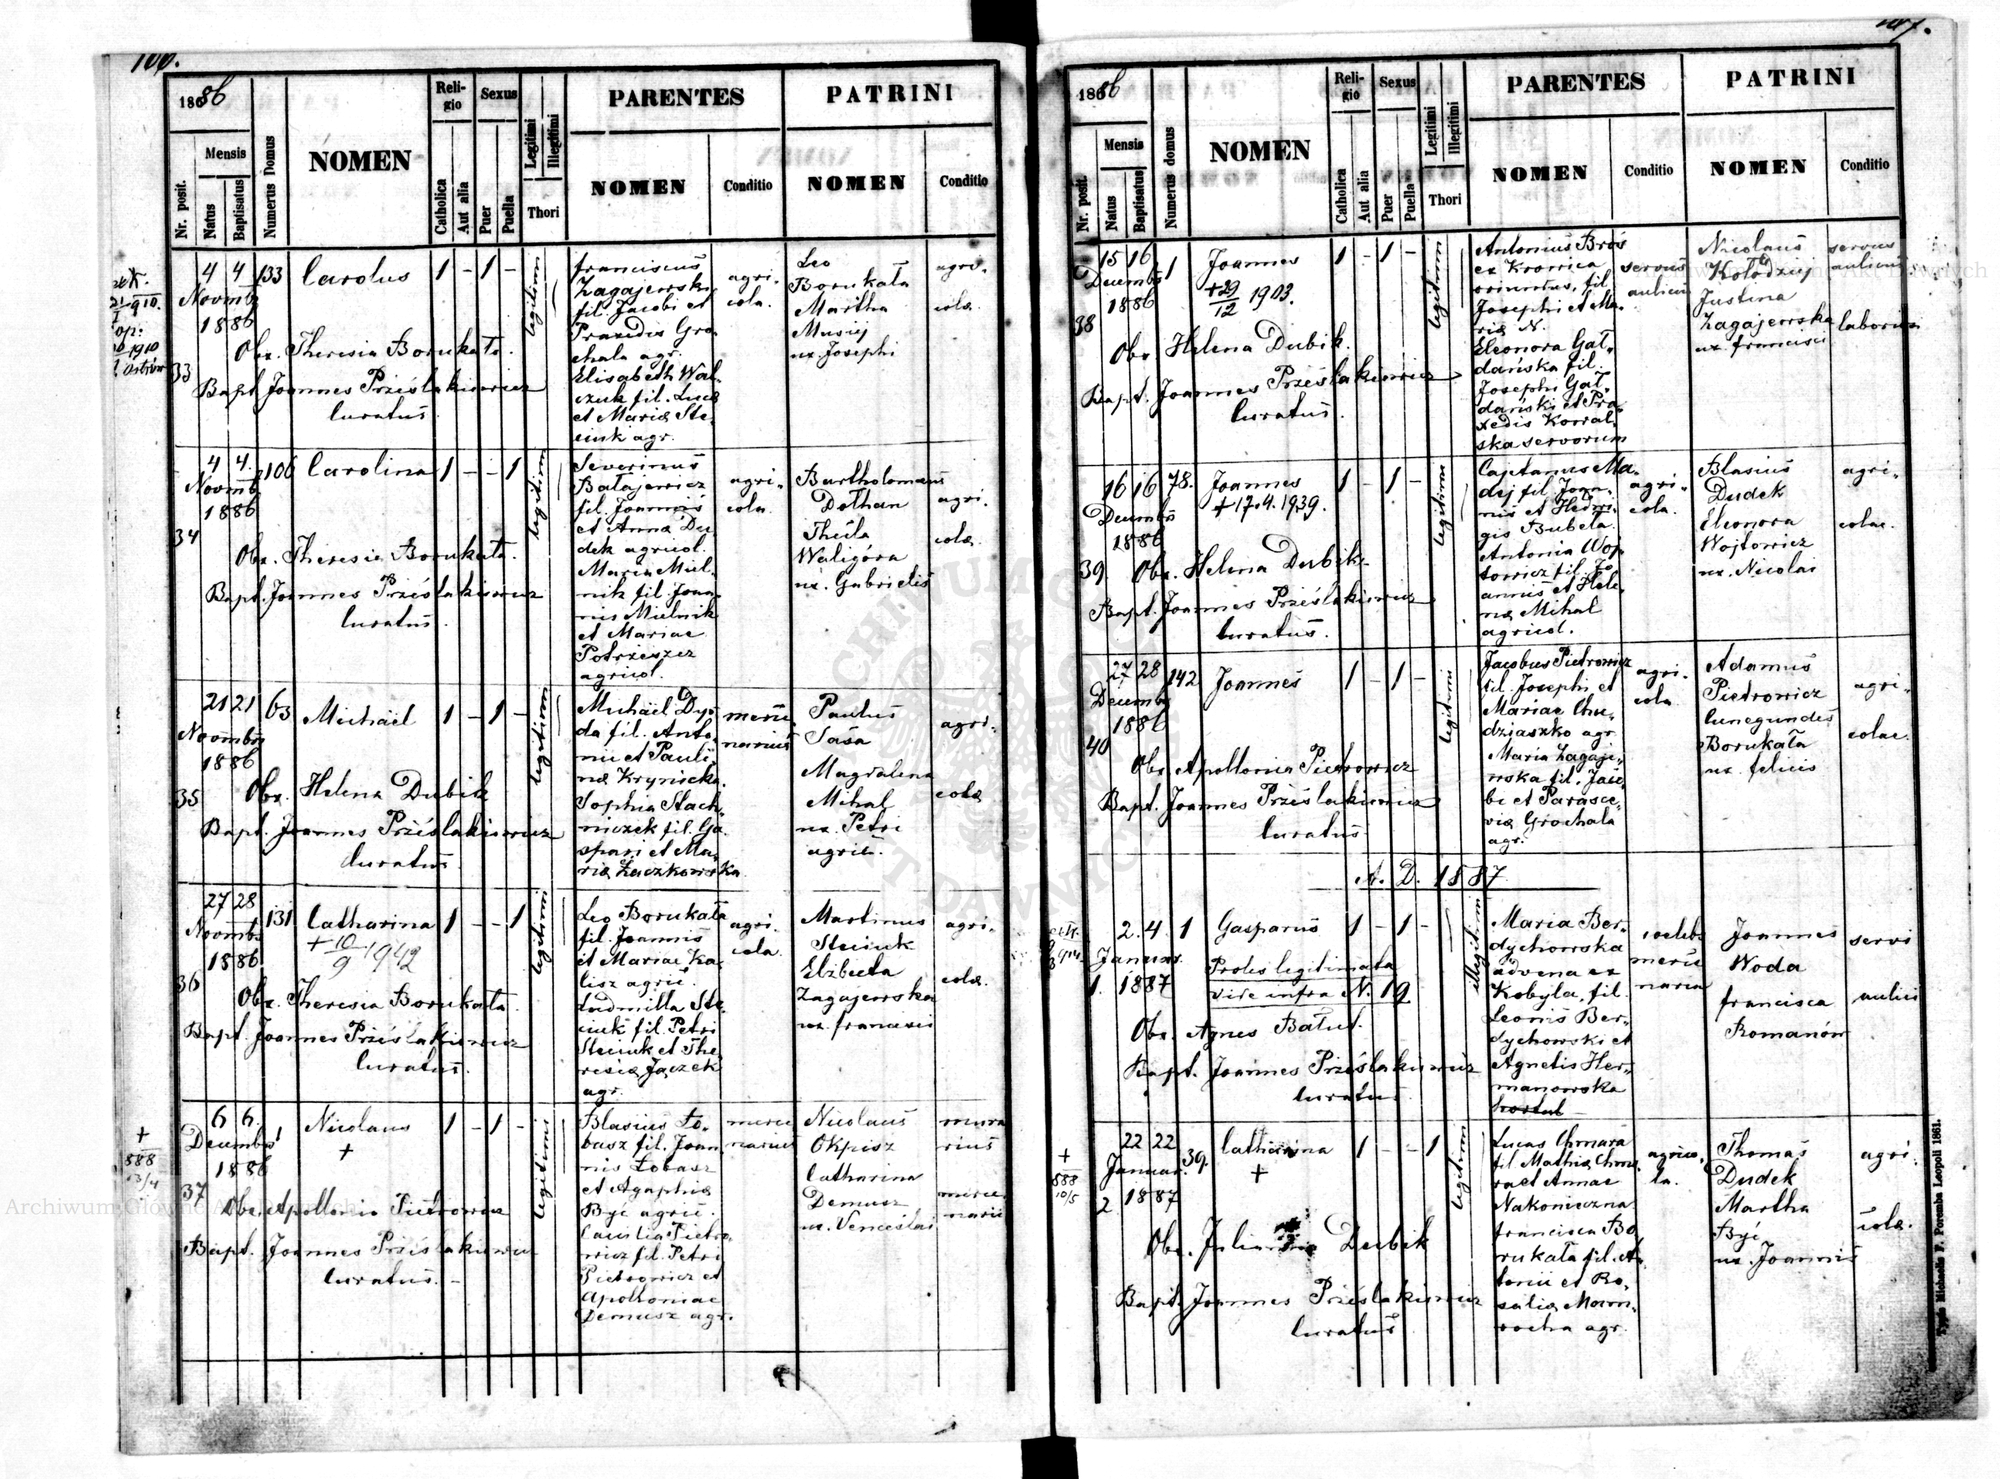 106.
1886
Nr. posit.
Mensis
Natus
Baptisatus
Numerus Domus
NOMEN
Religio
Catholica
Aut alia
Sexus
Puer
Puella
Legitimi
Illegitimi
Thori
PARENTES
NOMEN
Conditio
PATRINI
NOMEN
Conditio
33
4 4 133 Carolus 1 - 1 -
Novmb
1886
Obx. Theresia Borukała.
Bapt. Joannes Prześlakiewicz
Curatus.
legitimi
Franciscus
Zagajewski
fil. Jacobi et
Praxedis Gro-
chala agr.
Elisabeth Wal-
czuk fil. Lucæ
et Mariæ Ste-
ciuk agr.
agri-
cola.
Leo
Borukała
Martha
Musiej
ux. Josephi
agri-
colæ.
34
4 4. 106 Carolina 1 - - 1
Novmb
1886
Obx. Theresia Borukała.
Bapt. Joannes Prześlakiewicz
Curatus.
legitimi
Severinus
Batajewicz
fil. Joannis
et Anna Du-
dek agricol.
Maria Miel-
nik fil. Joan-
nis Mielnik
et Mariae
Potrzeszcz
agricol.
agri-
cola.
Bartholomaus
Dołhan
Thecla
Waligora
ux. Gabrielis
agri-
colæ.
35
21 21 63 Michäel 1 - 1 -
Novmbs
1886
Obx. Helena Dubik
Bapt. Joannes Prześlakiewicz
Curatus.
legitimi
Michäel Dyo-
da fil. Anto-
nii et Pauli-
næ Krynicka.
Sophia Stach-
niczek fil. Ga-
spari et Ma-
riæ Łaczkowska
merce-
narius
Paulus
Sasa
Magdalena
Mihal
ux. Petri
agric.
agri-
colæ
36
27 28 131 Catharina 1 - - 1
Novmb.
1886
+ 10/9 1942
Obx. Theresia Borukała.
Bapt. Joannes Prześlakiewicz
Curatus.
legitimi
Leo Borukała
fil. Joannis
et Mariae Ka-
lisz agric.
Ludmilla Ste-
ciuk fil. Petri
Steciuk et The-
resiæ Jaczek
agr.
agri-
cola
Martinus
Steciuk
Elzbieta
Zagajewska
ux. Francisci
agri-
colæ.
+
888
13/4
37
6 6. 1 Nicolaus 1 - 1 -
Decembs
1886
+
Obx. Apollonia Pietrowicz
Bapt. Joannes Prześlakiewicz
Curatus.
legitimi
Blasius Ło-
basz fil. Joan-
nis Łobasz
et Agaphiæ
Być agric.
Cæcilia Pietro-
wicz fil. Petri
Pietrowicz et
Apolloniae
Demusz agr.
merce
narius
Nicolaus
Okpisz
Catharina
Demusz
ux. Venceslai
mura
rius
merce-
narii
107.
1886
Nr. posit.
Mensis
Natus
Baptisatus
Numerus domus
NOMEN
Religio
Catholica
Aut alia
Sexus
Puer
Puella
Legitimi
Illegitimi
Thori
PARENTES
NOMEN
Conditio
PATRINI
NOMEN
Conditio
38
15 16 1 Joannes 1 - 1 -
Decembs
1886
+ 29/12 1903.
Obx Helena Dubik.
Bapt. Joannes Prześlakiewicz
Curatus.
legitimi
Antonius Bros
ex Kronica
oriundus, fil.
Josephi et Ma-
riæ N.
Eleonora Gał-
dańska fil.
Josephi Gał-
dański et Pra-
xedis Kowal-
ska servorum
servus
aulicus
Nicolaus
Kołodziej
Justina
Zagajewska
ux. Francisci
servus
aulicus
laborius
39
16 16 78. Joannes 1 - 1 -
Decembs
1886
+ 17.4.1939.
Obx. Helena Dubik.
Bapt. Joannes Prześlakiewicz
Curatus.
legitimi
Cajetanus Ma-
dej fil. Joan-
nis et Hedwi-
gis Bubela.
Antonia Woj-
towicz fil. Jo-
annis et Hele-
næ Mihal
agricol.
agri-
cola.
Blasius
Dudek
Eleonora
Wojtowicz
ux. Nicolai
agri-
colae.
40
27 28 142 Joannes 1 - 1 -
Decemb
1886
Obx. Apollonia Pietrowicz
Bapt. Joannes Prześlakiewicz
Curatus
legitimi
Jacobus Pietrowicz
fil. Josephi et
Mariae Chu-
dzjaszko agr.
Maria Zagaje-
wska fil. Jaco-
bi et Parasce-
viæ Grochala
agr.
agri-
cola
Adamus
Pietrowicz
Cunegundes
Borukała
ux. Felicis
agri-
colae.
A. D. 1887
1.
2. 4. 1 Gasparus 1 - 1 -
Januar.
1887
Proles legitimata
vide infra N. 19
Obx. Agnes Bałut.
Bapt. Joannes Prześlakiewicz
Curatus
illegitimi
Maria Ber-
dychowska
advena ex
Kobyla, fil.
Leonis Ber-
dychowski et
Agnetis Her-
manowska
coelebs
merce
naria
Joannes
Woda
Francisca
Romanów
servi
aulici
+
888
10/5
2
22 22 39. Catharina 1 - - 1
Januar.
1887
+
Obx. Julianna Dubik
Bapt. Joannes Prześlakiewicz
Curatus
legitimi
Lucas Chmara
fil Mathiæ Chma-
ra et Annae
Nakonieczna
Francisca Bo-
rukała fil. An-
tonii et Ro-
saliæ Mocm-
rocha agr.
agrico-
la.
Thomas
Dudek
Martha
Być
ux. Joannis
agri-
colæ.
Typis Michaelis F. Poremba Leopoli 1861.
Archiwum Główne Akt Dawnych
ARCHIWUM GŁÓWNE AKT DAWNYCH